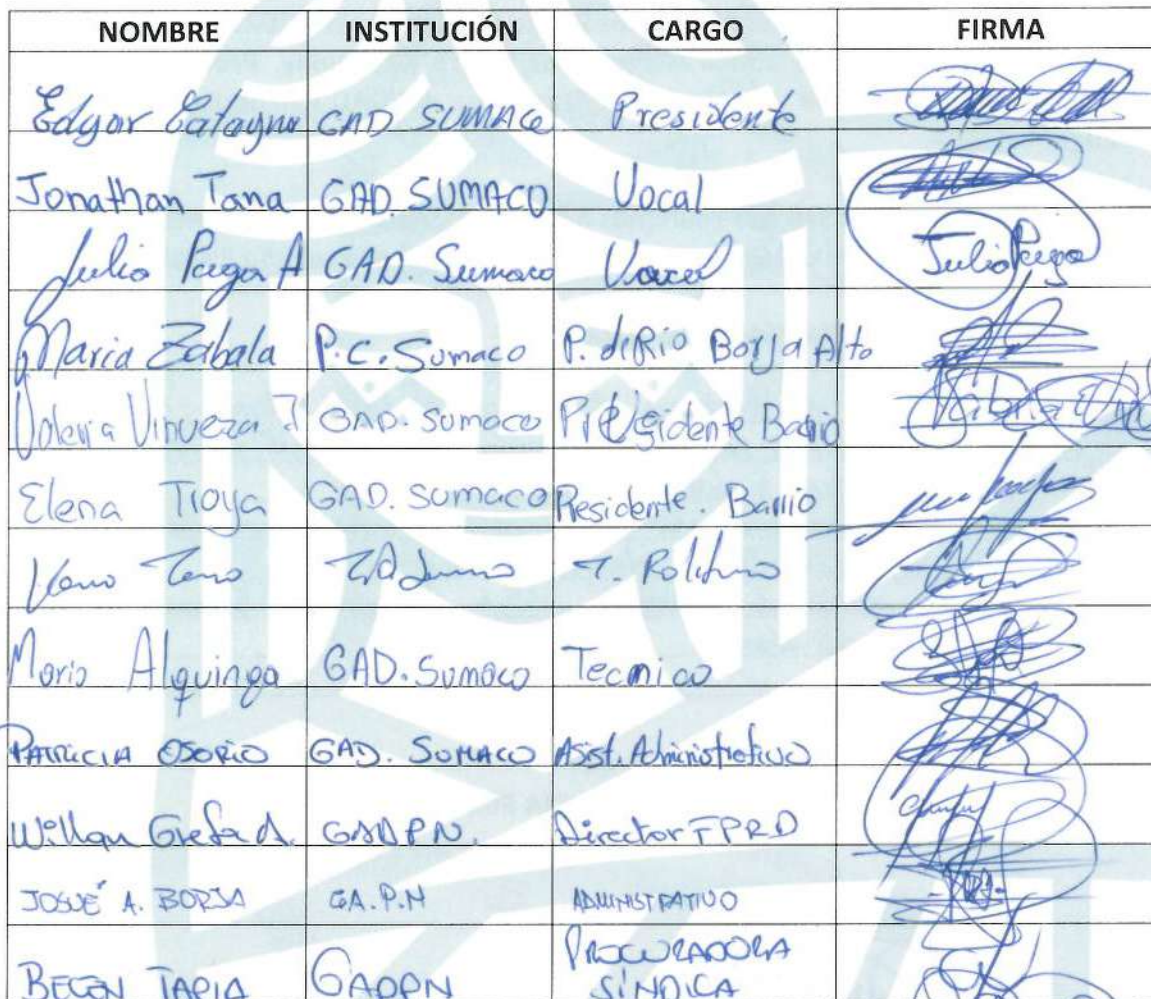 NOMBRE INSTITUCIÓN CARGO FIRMA
Edgar Catagña GAD SUMACO Presidente
Jonathan Tana GAD. SUMACO Vocal
Julio Paga A GAD. Sumaco Vocal Julio Paga
Maria Zabala P.C. Sumaco P. de Rio Borja Alto
Valeria Vinueza J GAD. Sumaco Presidente Barrio
Elena Troya GAD. Sumaco Presidente. Barrio
Mario Alquinga GAD. Sumaco Tecnico
PATRICIA OSORIO GAD. SUMACO Asist. Administrativo
Willan Grefa A. GADPN. Director FPRD
JOSUÉ A. BORJA GA.P.N ADMINISTRATIVO
PROCURADORA
BELÉN TAPIA GADPN SÍNDICA